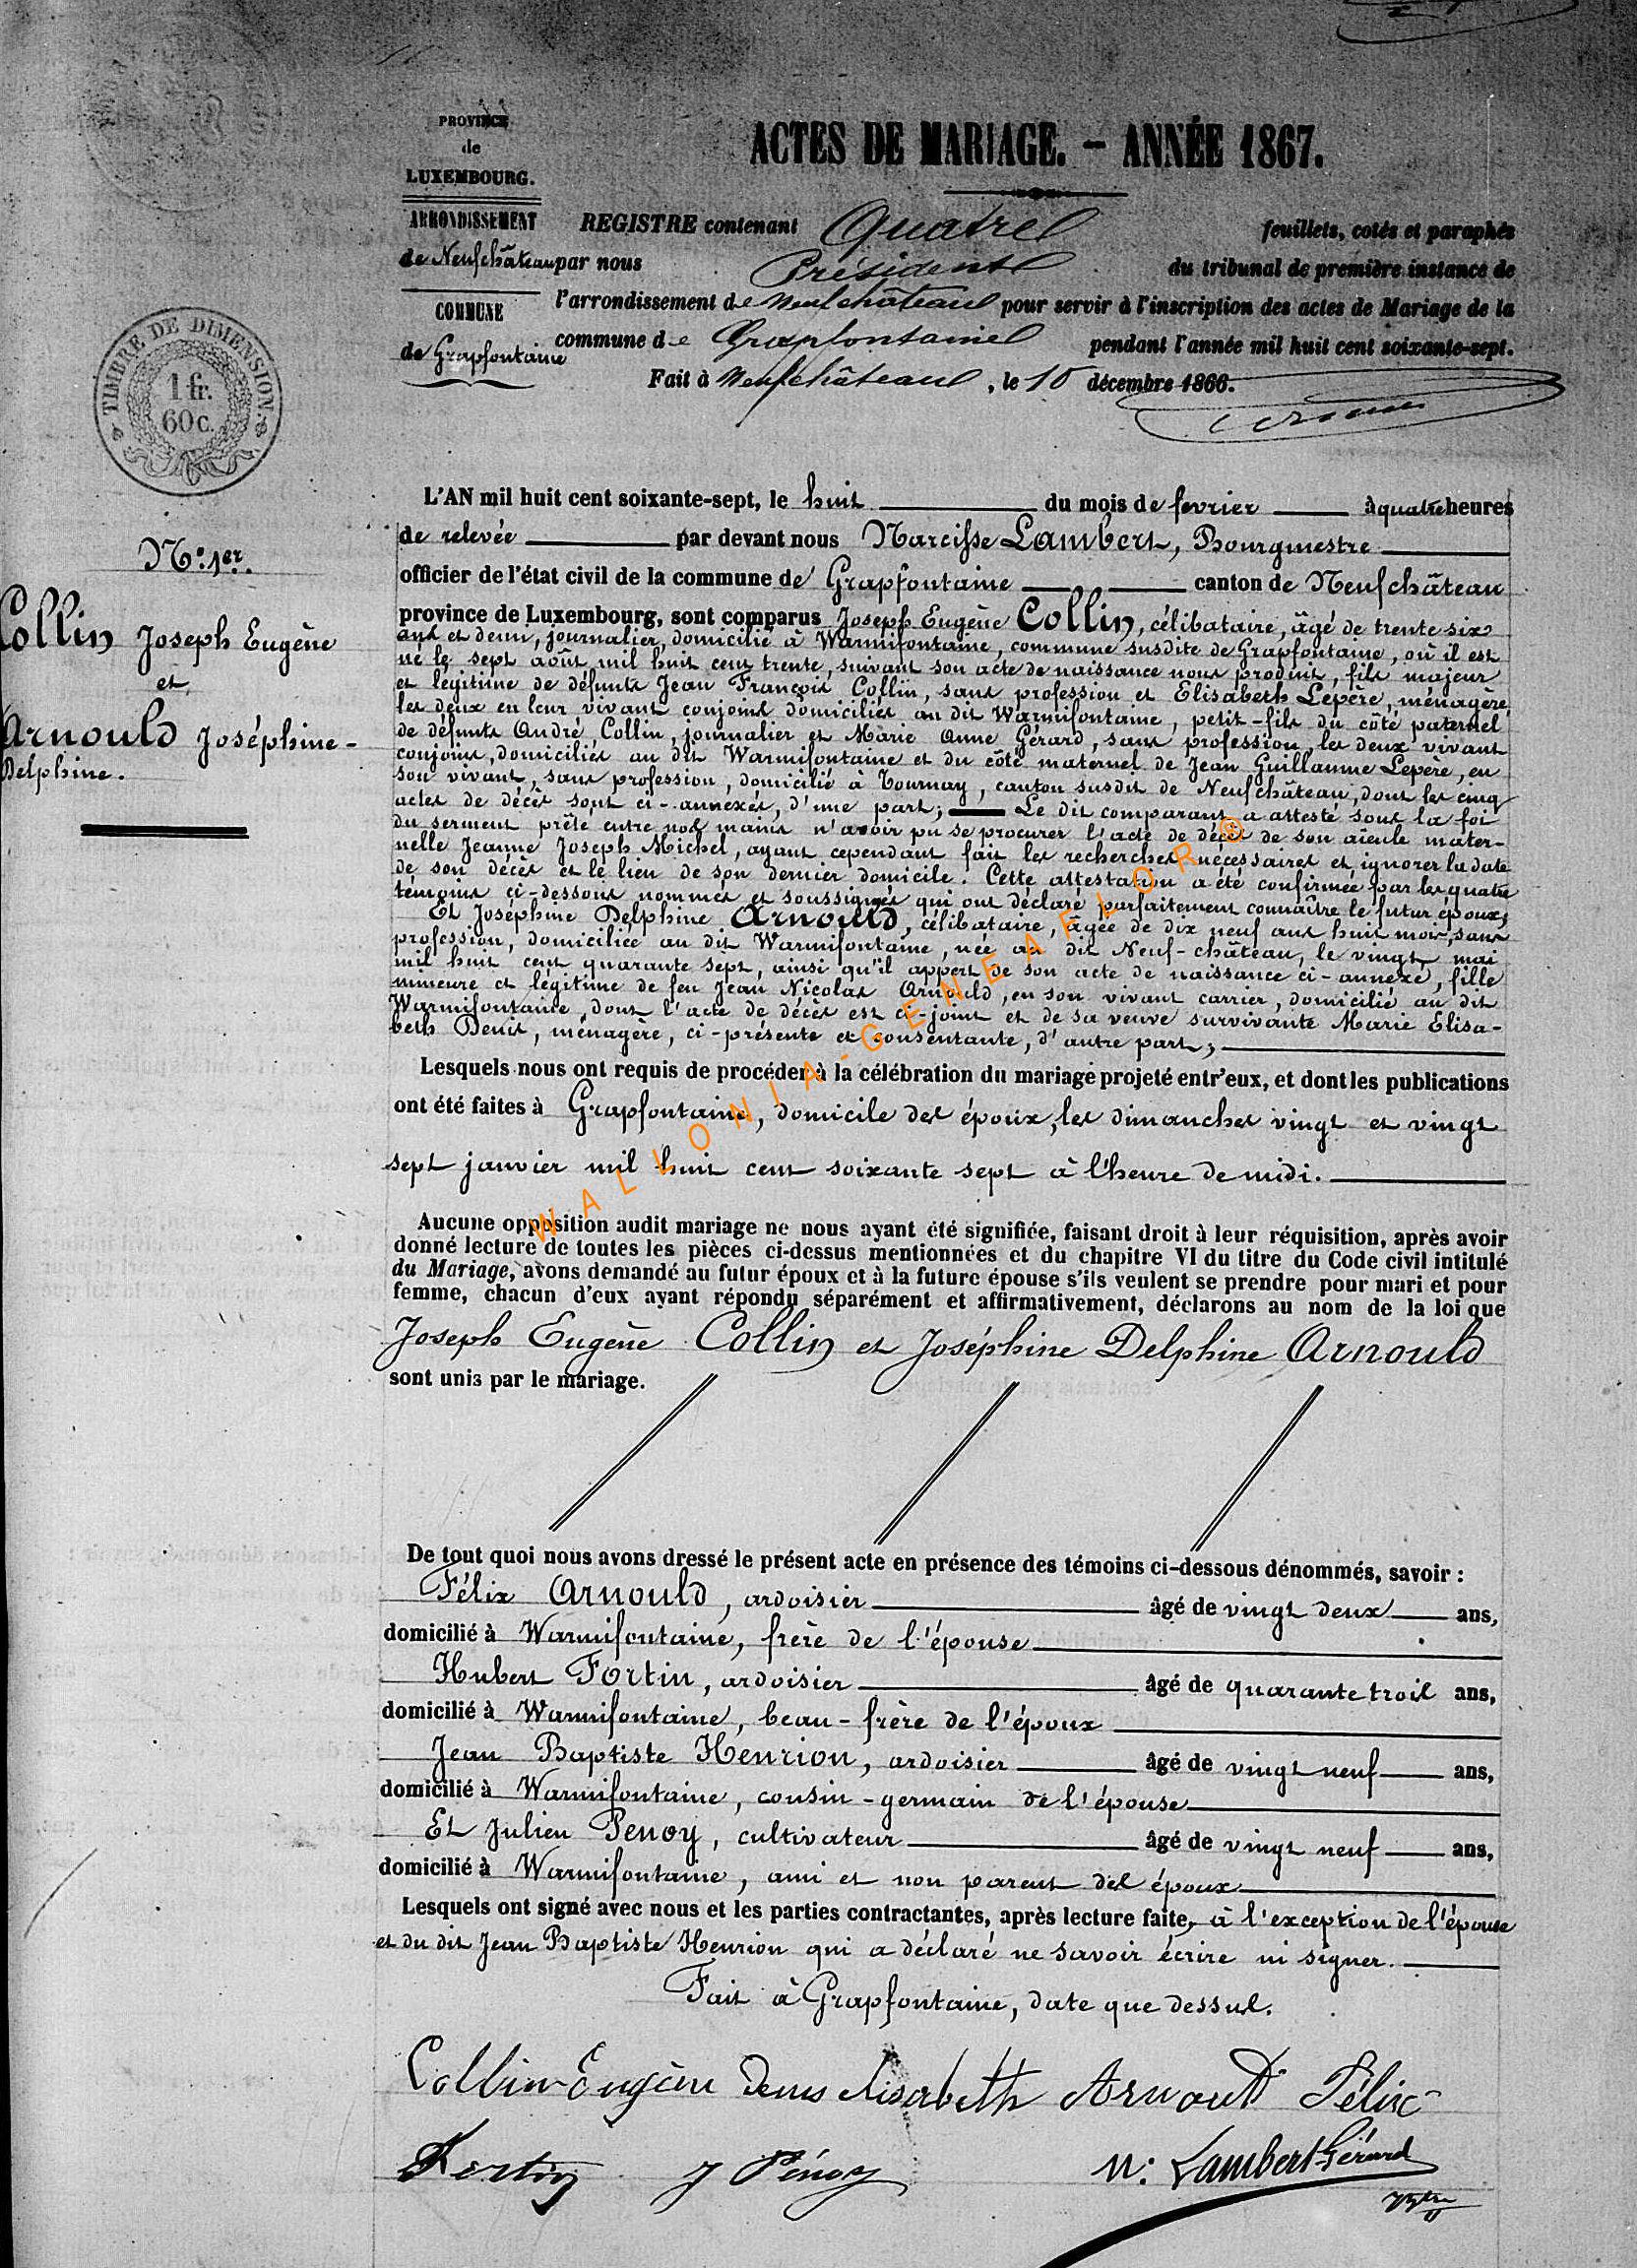 PROVINCE
de
LUXEMBOURG.
ARRONDISSEMENT
de Neufchâteau
COMMUNE
de Grapfontaine
ACTES DE MARIAGE. – ANNÉE 1867.
REGISTRE contenant Quatre feuillets, cotés et paraphés
par nous Président du tribunal de première instance de
l'arrondissement de Neufchâteau pour servir à l'inscription des actes de Mariage de la
commune de Grapfontaine pendant l'année mil huit cent soixante-sept.
Fait à Neufchâteau, le 10 décembre 1866.
TIMBRE DE DIMENSION.
1 fr.
60 c.
N°: 1er.
Collin Joseph Eugène
et
Arnould Joséphine-
Delphine.
L'AN mil huit cent soixante-sept, le huit du mois de fevrier à quatre heures
de relevée par devant nous Narcisse Lambert, Bourgmestre
officier de l'état civil de la commune de Grapfontaine canton de Neufchâteau
province de Luxembourg, sont comparus Joseph Eugène Collin, célibataire, âgé de trente six
ans et demi, journalier, domicilié à Warmifontaine, commune susdite de Grapfontaine, où il est
né le sept août mil huit cent trente, suivant son acte de naissance nous produit, fils majeur
et légitime de défunts Jean François Collin, sans profession et Elisabeth Lepère, ménagère,
les deux en leur vivant conjoins domiciliés au dit Warmifontaine, petit-fils du côté paternel
de défunts André Collin, journalier et Marie Anne Gérard, sans profession, les deux vivant
conjoins, domiciliés au dit Warmifontaine et du côté maternel de Jean Guillaume Lepère, en
son vivant, sans profession, domicilié à Tournay, canton susdit de Neufchâteau, dont les cinq
actes de décès sont ci-annexés, d'une part; Le dit comparant a attesté sous la foi
du serment prêté entre nos mains n'avoir pu se procurer l'acte de décès de son aïeule mater-
nelle Jeanne Joseph Michel, ayant cependant fait les recherches nécessaires et ignorer la date
de son décès et le lieu de son dernier domicile. Cette attestation a été confirmée par les quatre
témoins ci-dessous nommés et soussignés qui ont déclaré parfaitement connaître le futur époux;
Et Joséphine Delphine Arnould, célibataire, âgée de dix neuf ans huit mois, sans
profession, domiciliée au dit Warmifontaine, née au dit Neuf-château, le vingt mai
mil huit cent quarante sept, ainsi qu'il appert de son acte de naissance ci-annexé, fille
mineure et légitime de feu Jean Nicolas Arnould, en son vivant carrier, domicilié au dit
Warmifontaine, dont l'acte de décès est ci-joint et de sa veuve survivante Marie Elisa-
beth Denis, ménagère, ci-présente et consentante, d'autre part;
Lesquels nous ont requis de procéder à la célébration du mariage projeté entr'eux, et dont les publications
ont été faites à Grapfontaine, domicile des époux, les dimanches vingt et vingt
sept janvier mil huit cent soixante sept à l'heure de midi.
Aucune opposition audit mariage ne nous ayant été signifiée, faisant droit à leur réquisition, après avoir
donné lecture de toutes les pièces ci-dessus mentionnées et du chapitre VI du titre du Code civil intitulé
du Mariage, avons demandé au futur époux et à la future épouse s'ils veulent se prendre pour mari et pour
femme, chacun d'eux ayant répondu séparément et affirmativement, déclarons au nom de la loi que
Joseph Eugène Collin et Joséphine Delphine Arnould
sont unis par le mariage.
De tout quoi nous avons dressé le présent acte en présence des témoins ci-dessous dénommés, savoir :
Félix Arnould, ardoisier âgé de vingt deux ans,
domicilié à Warmifontaine, frère de l'épouse
Hubert Fortin, ardoisier âgé de quarante trois ans,
domicilié à Warmifontaine, beau-frère de l'époux
Jean Baptiste Henrion, ardoisier âgé de vingt neuf ans,
domicilié à Warmifontaine, cousin-germain de l'épouse
Et Julien Penoy, cultivateur âgé de vingt neuf ans,
domicilié à Warmifontaine, ami et non parent des époux
Lesquels ont signé avec nous et les parties contractantes, après lecture faite, à l'exception de l'épouse
et du dit Jean Baptiste Henrion qui a déclaré ne savoir écrire ni signer.
Fait à Grapfontaine, date que dessus.
Collin Eugène Denis elisabeth Arnould Félix
Fortin J Pénoy N: Lambert Gérard
WALLONIA-GENEAFLOR®